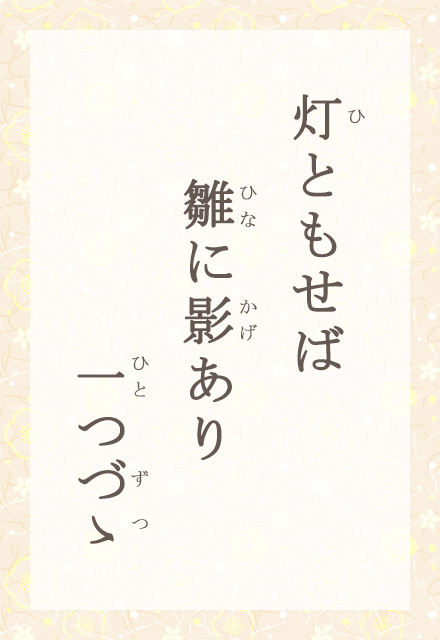 灯ともせば
ひ
雛に影あり
ひな かげ
一つづゝ
ひと ずつ